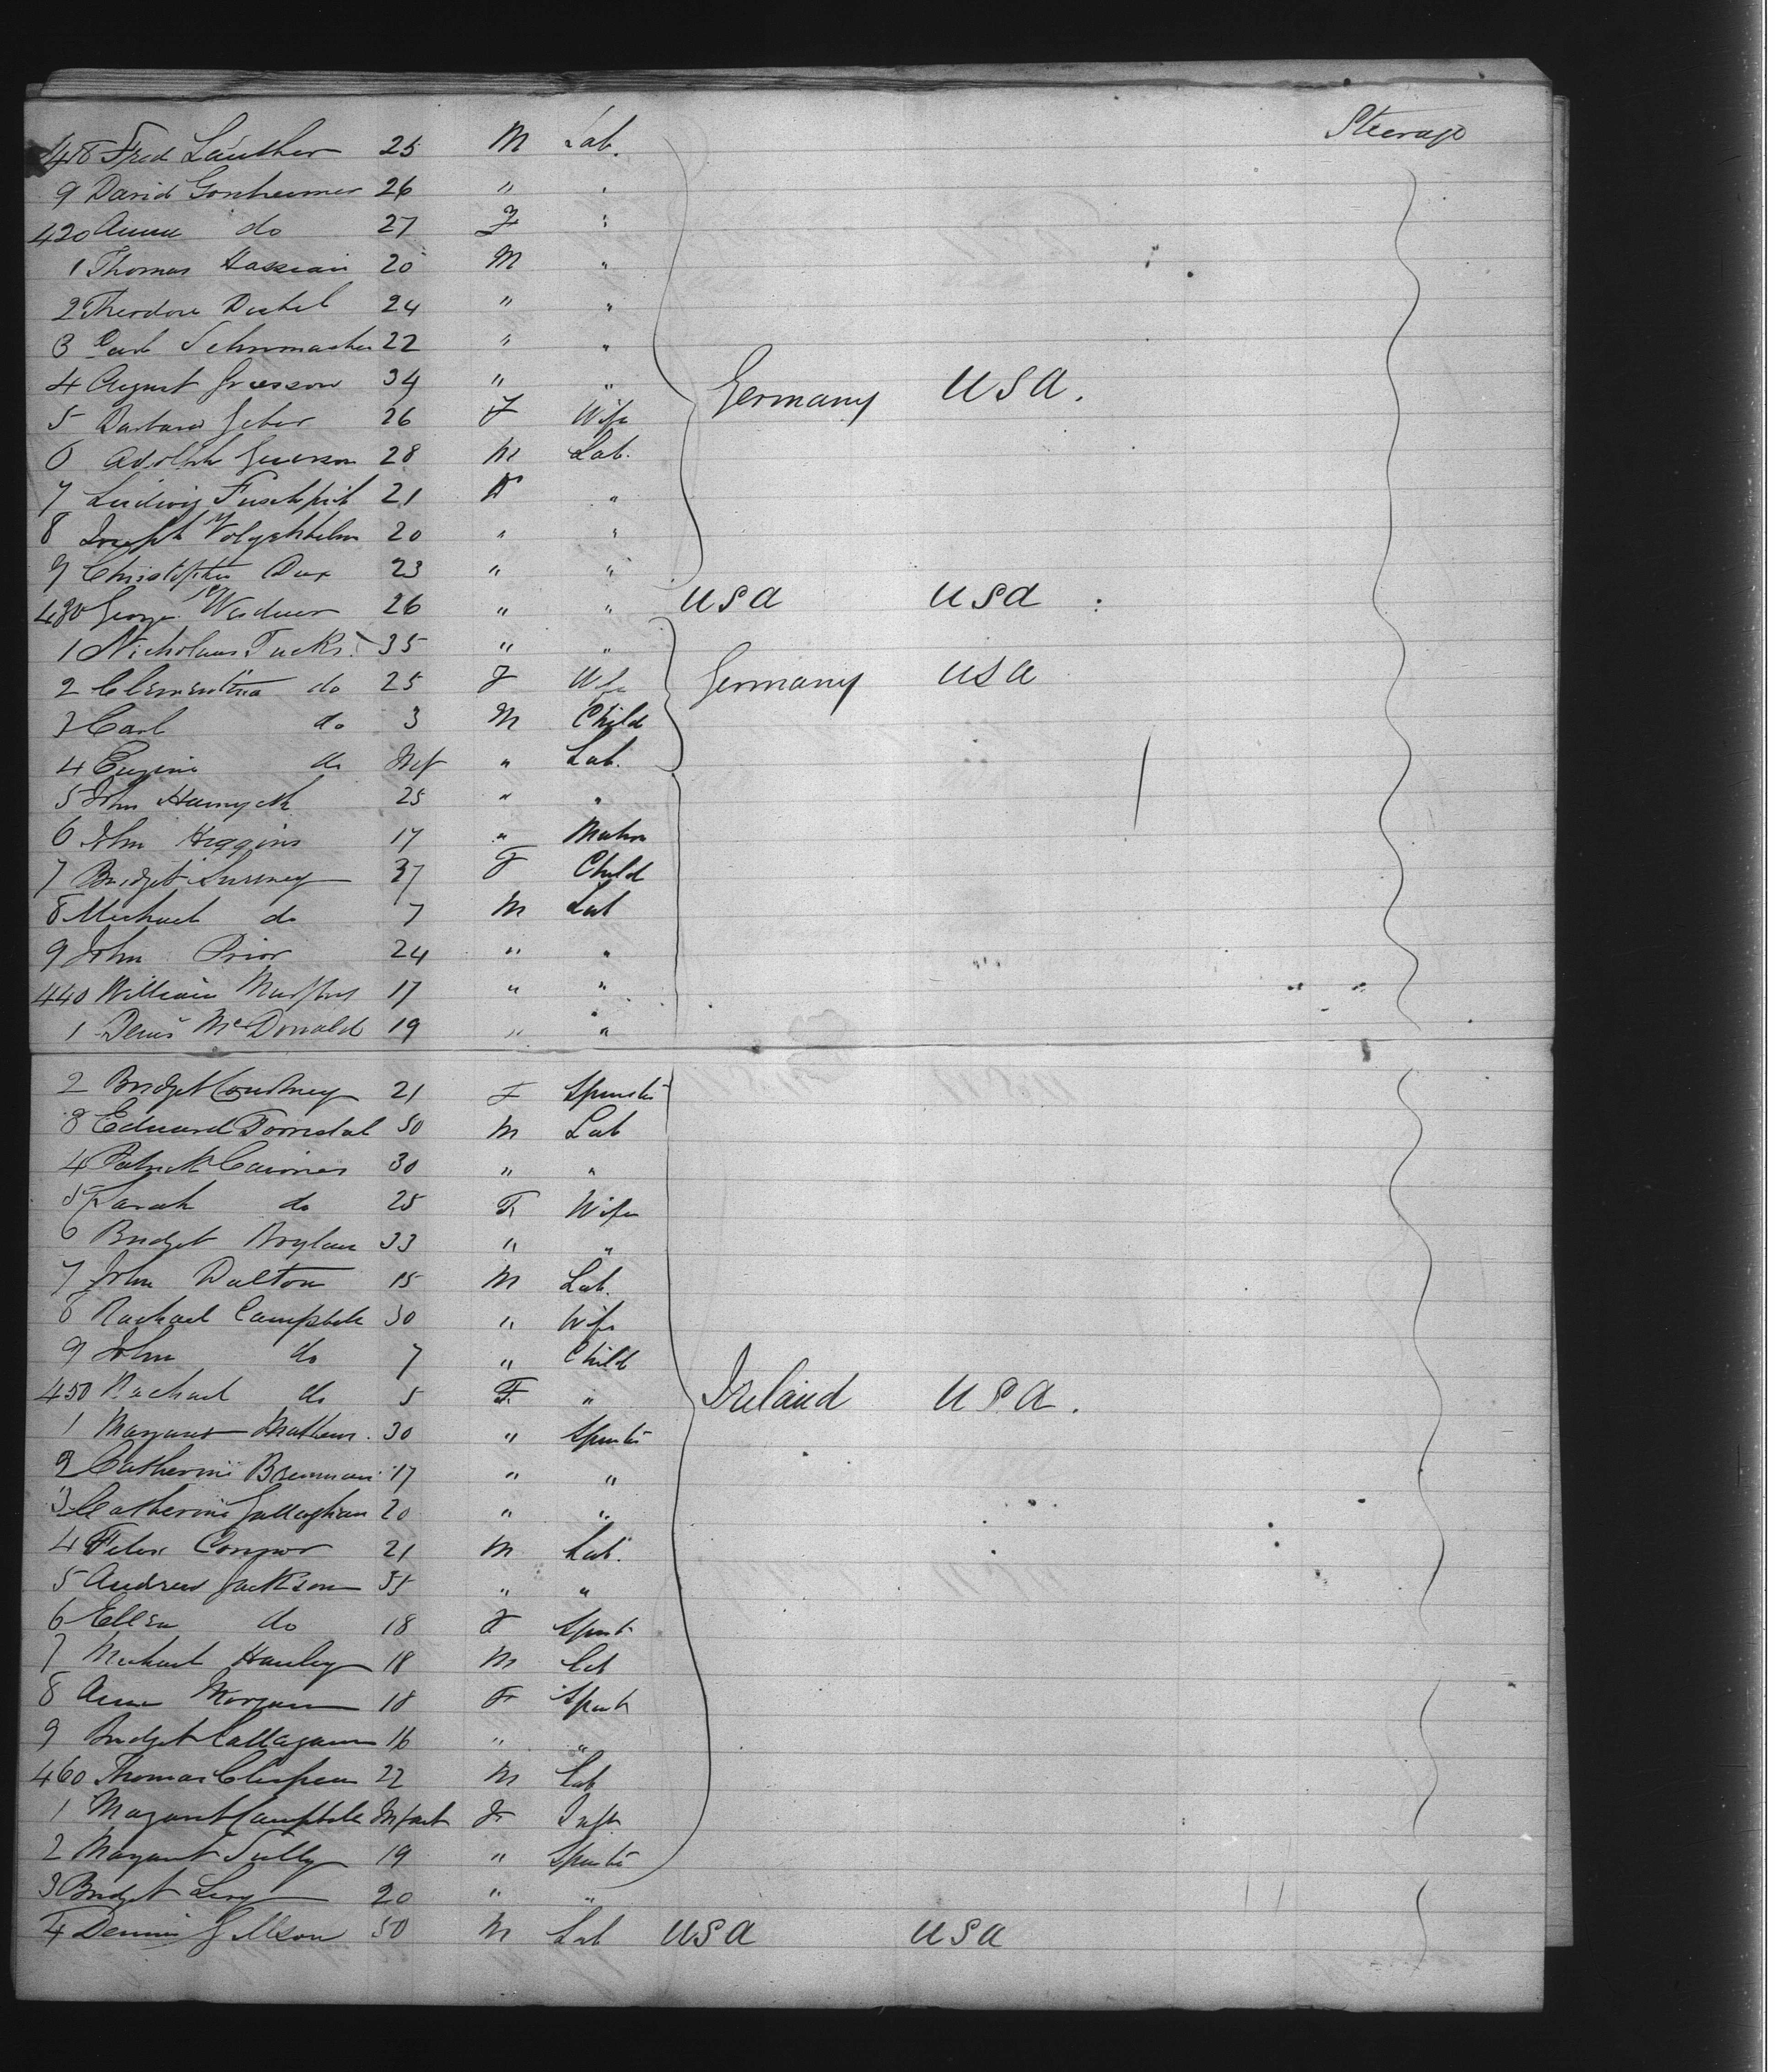 Steerage
418 Fred Lauther 25 M Lab.
9 David Gonheimer 26 "
420 Anna do 27 F
1 Thomas 20 M "
2 Theodore 24 " "
3 Carl Schumacher 22 " "
4 August 34 " " Germany USA.
5 Barbara 26 F Wife
6 Adolph 28 M Lab.
7 Ludwig 21 "
8 Joseph 20 " "
9 Christopher Dux 23 " "
430 George Weidner 26 " " USA USA
1 Nicholaus Fucks 35 " "
2 Clementina do 25 F Wife Germany USA
3 Carl do 3 M Child
4 Eugene do Inf " Lab.
5 John 25 " "
6 John Higgins 17 " Matron
7 Bridget 37 F Child
8 Michael do 7 M Lab
9 John Prior 24 " "
440 William 17 " "
1 Denis McDonald 19 " "
2 Bridget Courtney 21 F Spinster
3 Edward 50 M Lab
4 Patrick 30 " "
5 Sarah do 25 F. Wife
6 Bridget Boylan 33 " "
7 John Dalton 15 M Lab.
8 Rachael Campbell 30 " Wife
9 John do 7 " Child
450 Rachael do 5 F. " Ireland USA.
1 Margaret Mathews. 30 " Spinster
2 Catherine Brennan 17 " "
3 Catherine Gallaghan 20 " "
4 Connor 21 M Lab.
5 Andrew Jackson 55 " "
6 Ellen do 18 F Spinst
7 Michael Hanley 18 M Lab
8 Anne Morgan 18 F Spinst
9 Bridget Callagann 16 " "
460 Thomas 22 M Lab
1 Margaret Campbell Infant F Inft
2 Margaret Tully 19 " Spinster
3 Bridget 20 " "
4 Dennis 50 M Lab USA USA